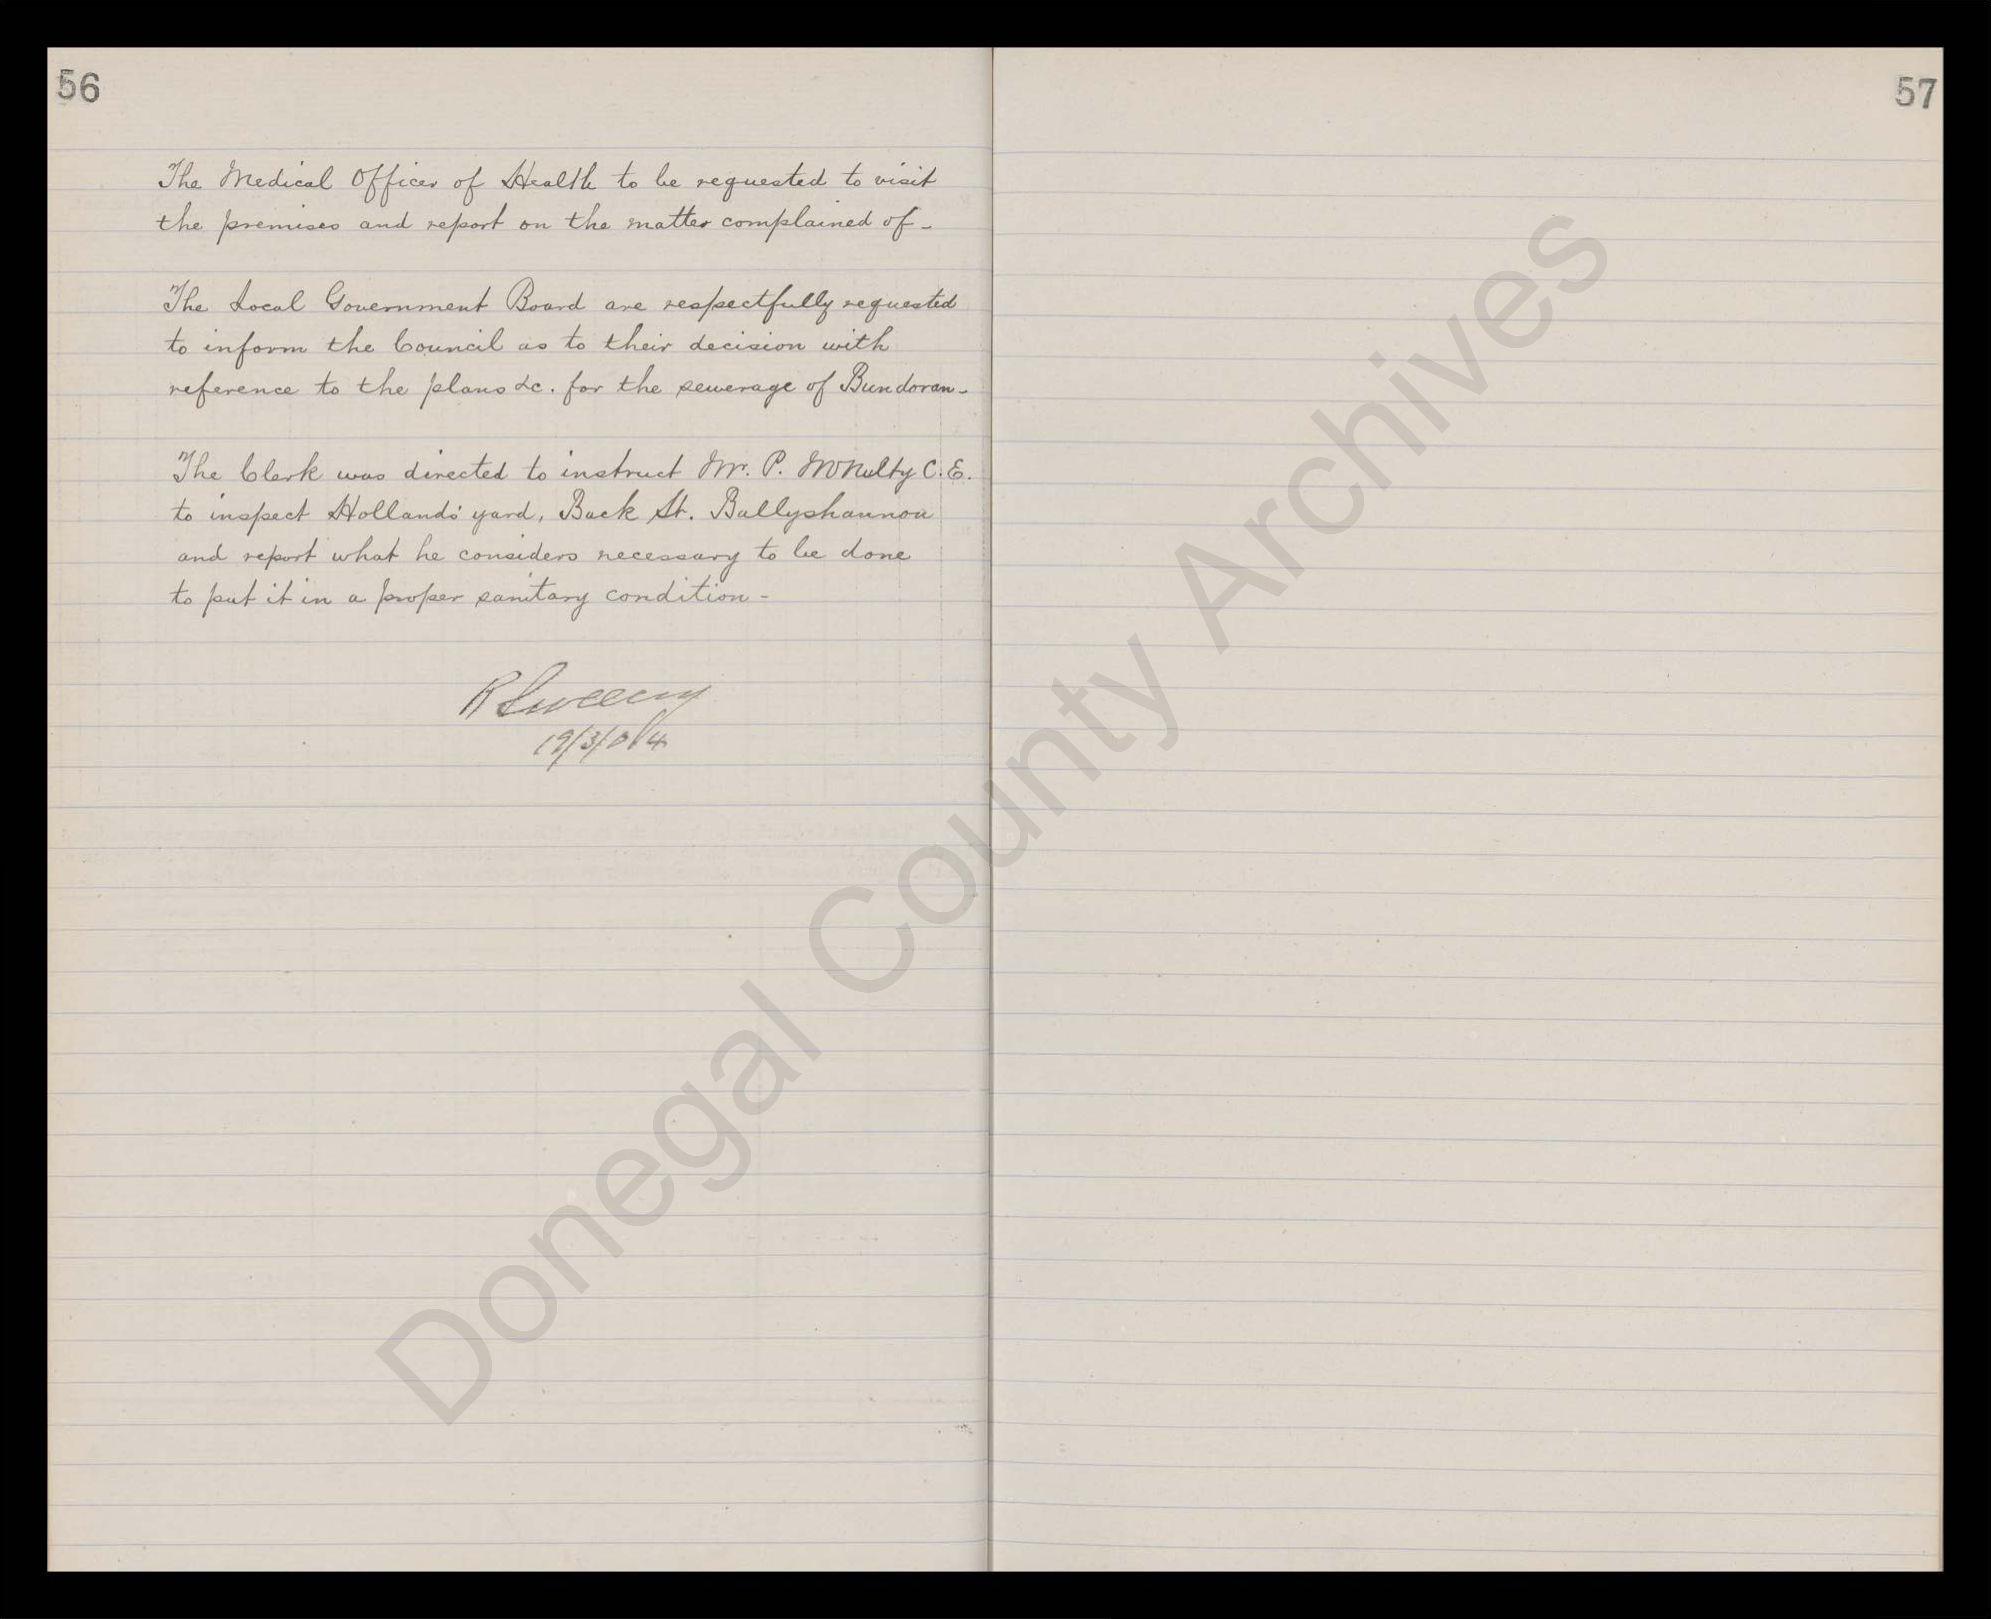 56
The Medical Officer of Health to be requested to visit
the premises and report on the matter complained of -
The Local Government Board are respectfully requested
to inform the Council as to their decision with
reference to the plans &c. for the sewerage of Bundoran -
The Clerk was directed to instruct Mr. P. McNulty C.E.
to inspect Hollands' yard, Back St. Ballyshannon
and report what he considers necessary to be done
to put it in a proper sanitary condition -
R Sweeny
19/3/04
57
Donegal County Archives